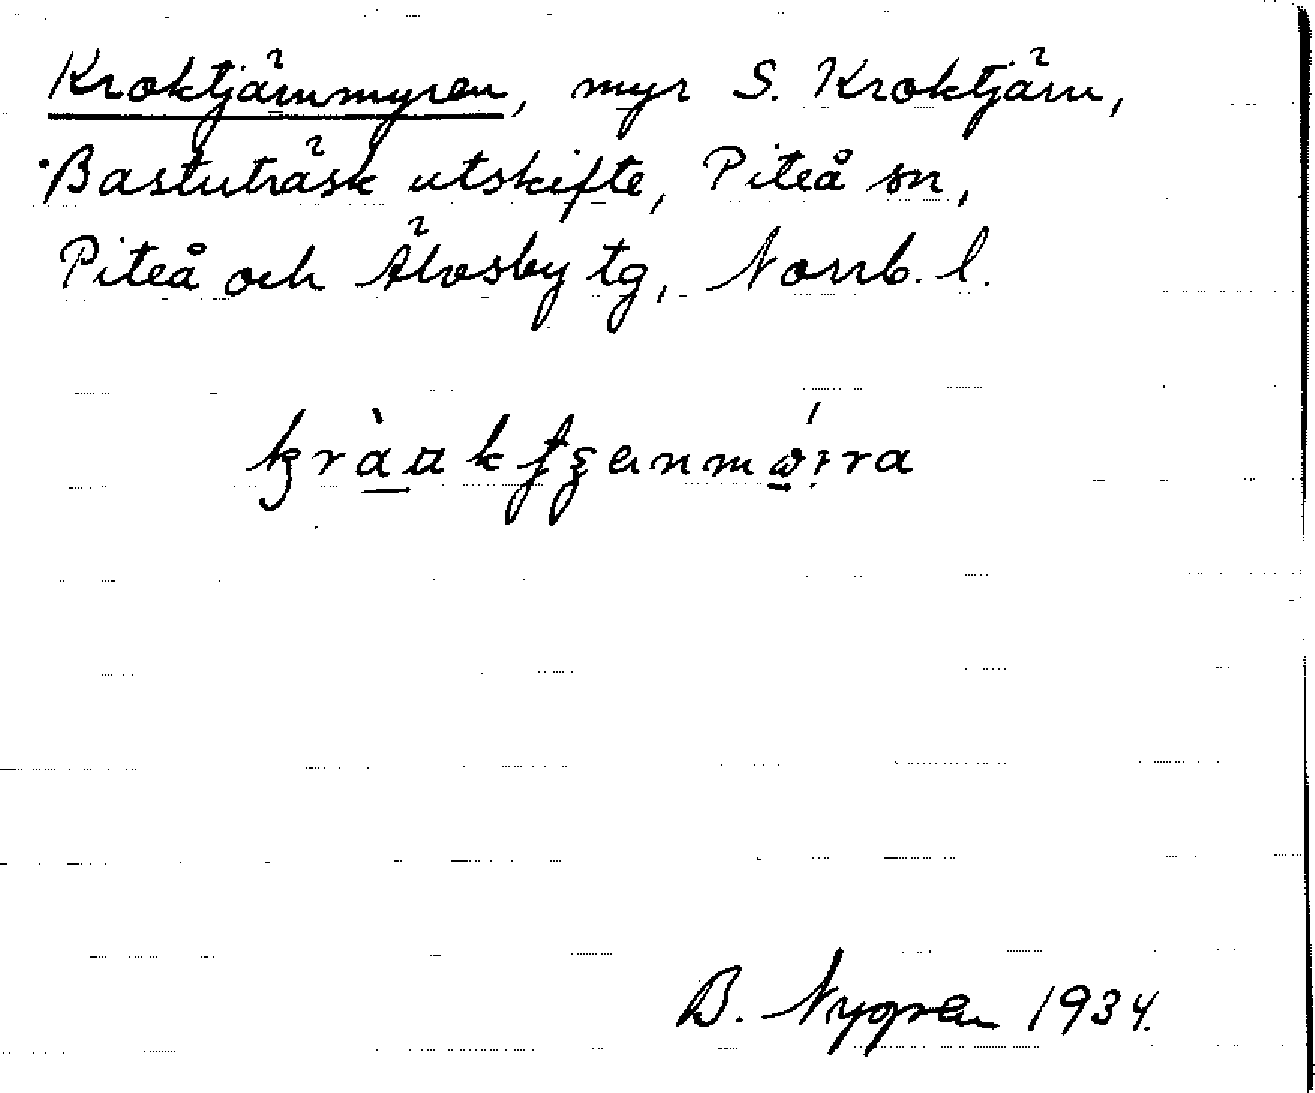 Kroktjärnmyren, myr S. Kroktjärn,
Bastuträsk utskifte, Piteå sn,
Piteå och Älvsby tg, Norrb. l.
B. Nygren 1934.